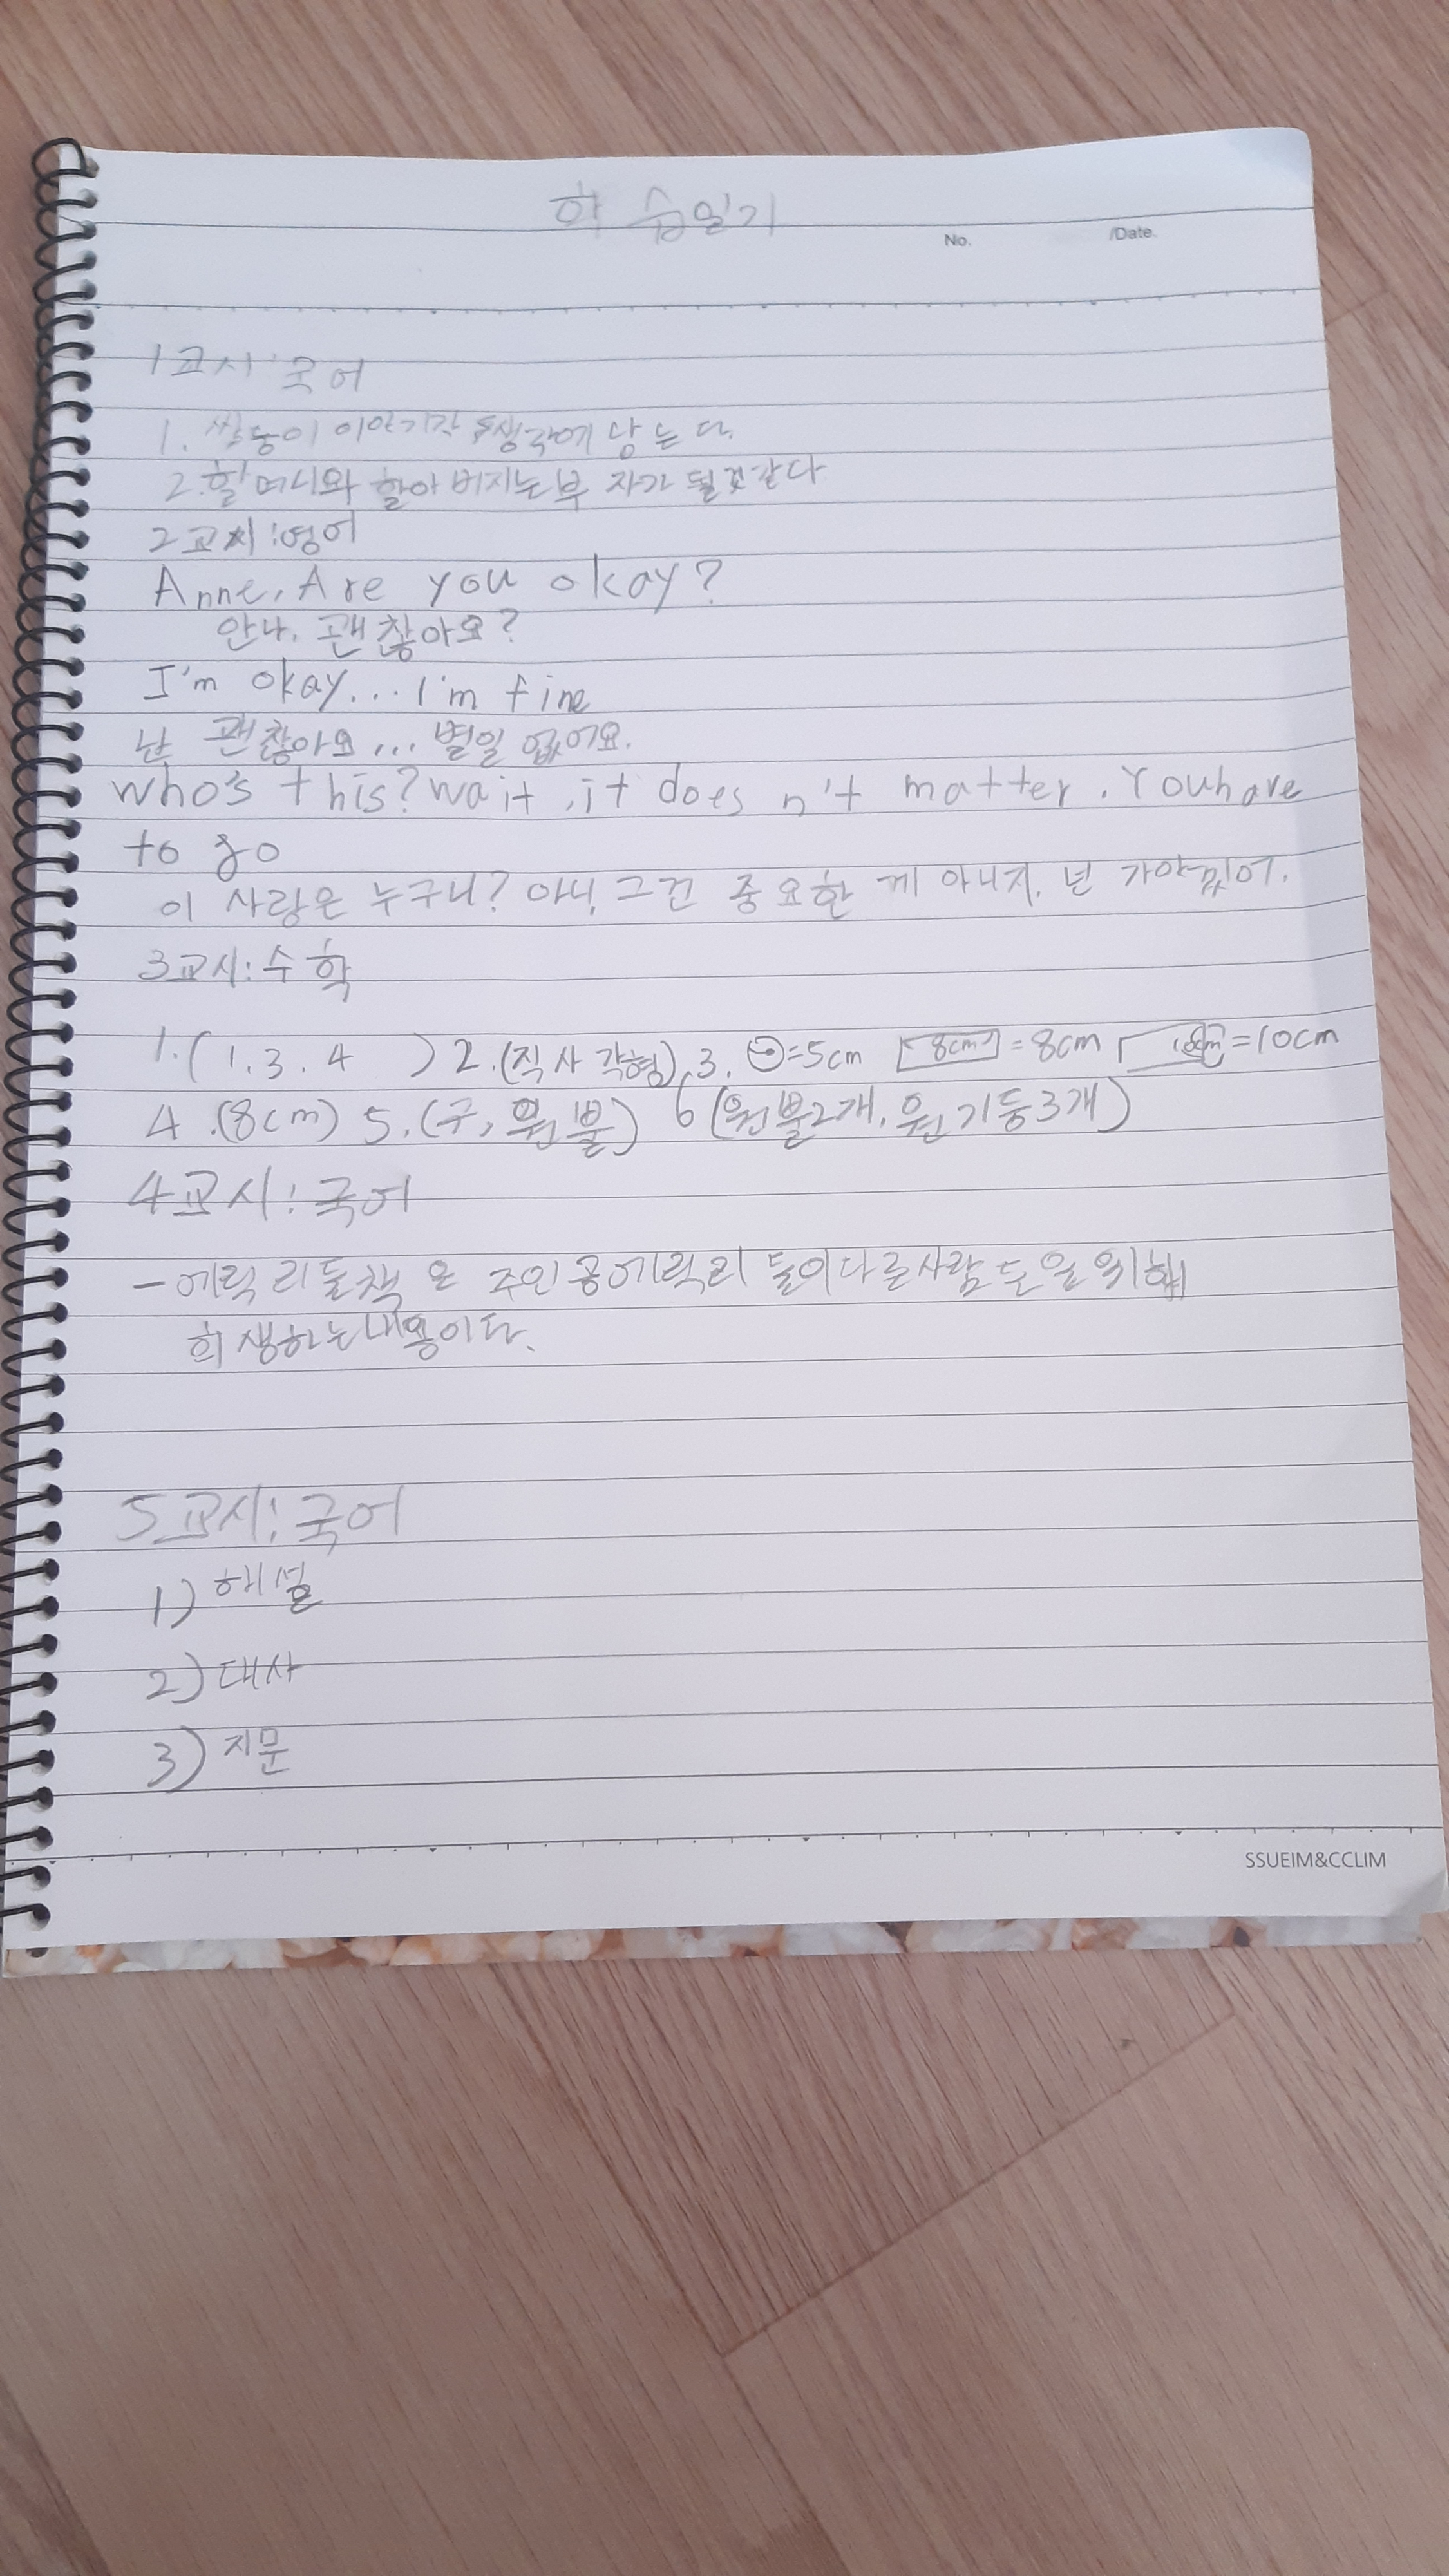 학습일기
No. /Date.
1교시:국어
1. 쌀둥이 이야기가 생각에 남는다.
2. 할머니와 할아버지는 부자가 될것같다
2교시:영어
Anne, Are you okay?
안나, 괜찮아요?
I'm okay... I'm fine
난 괜찮아요... 별일 없어요.
who's this? wait, it does n't matter. You have
to go
이 사람은 누구니? 아니, 그건 중요한 게 아니지, 넌 가야겠어.
3교시:수학
1.(1.3.4 ) 2.(직사각형).3. =5cm 8cm =8cm =10cm
4.(8cm) 5.(구, 원뿔) 6(원뿔2개, 원기둥3개)
4교시:국어
-에릭 리들책 은 주인공에릭리 들이다른사람 들을위해
희생하는내용이다.
5교시:국어
1) 해설
2) 대사
3) 지문
SSUEIM&CCLIM